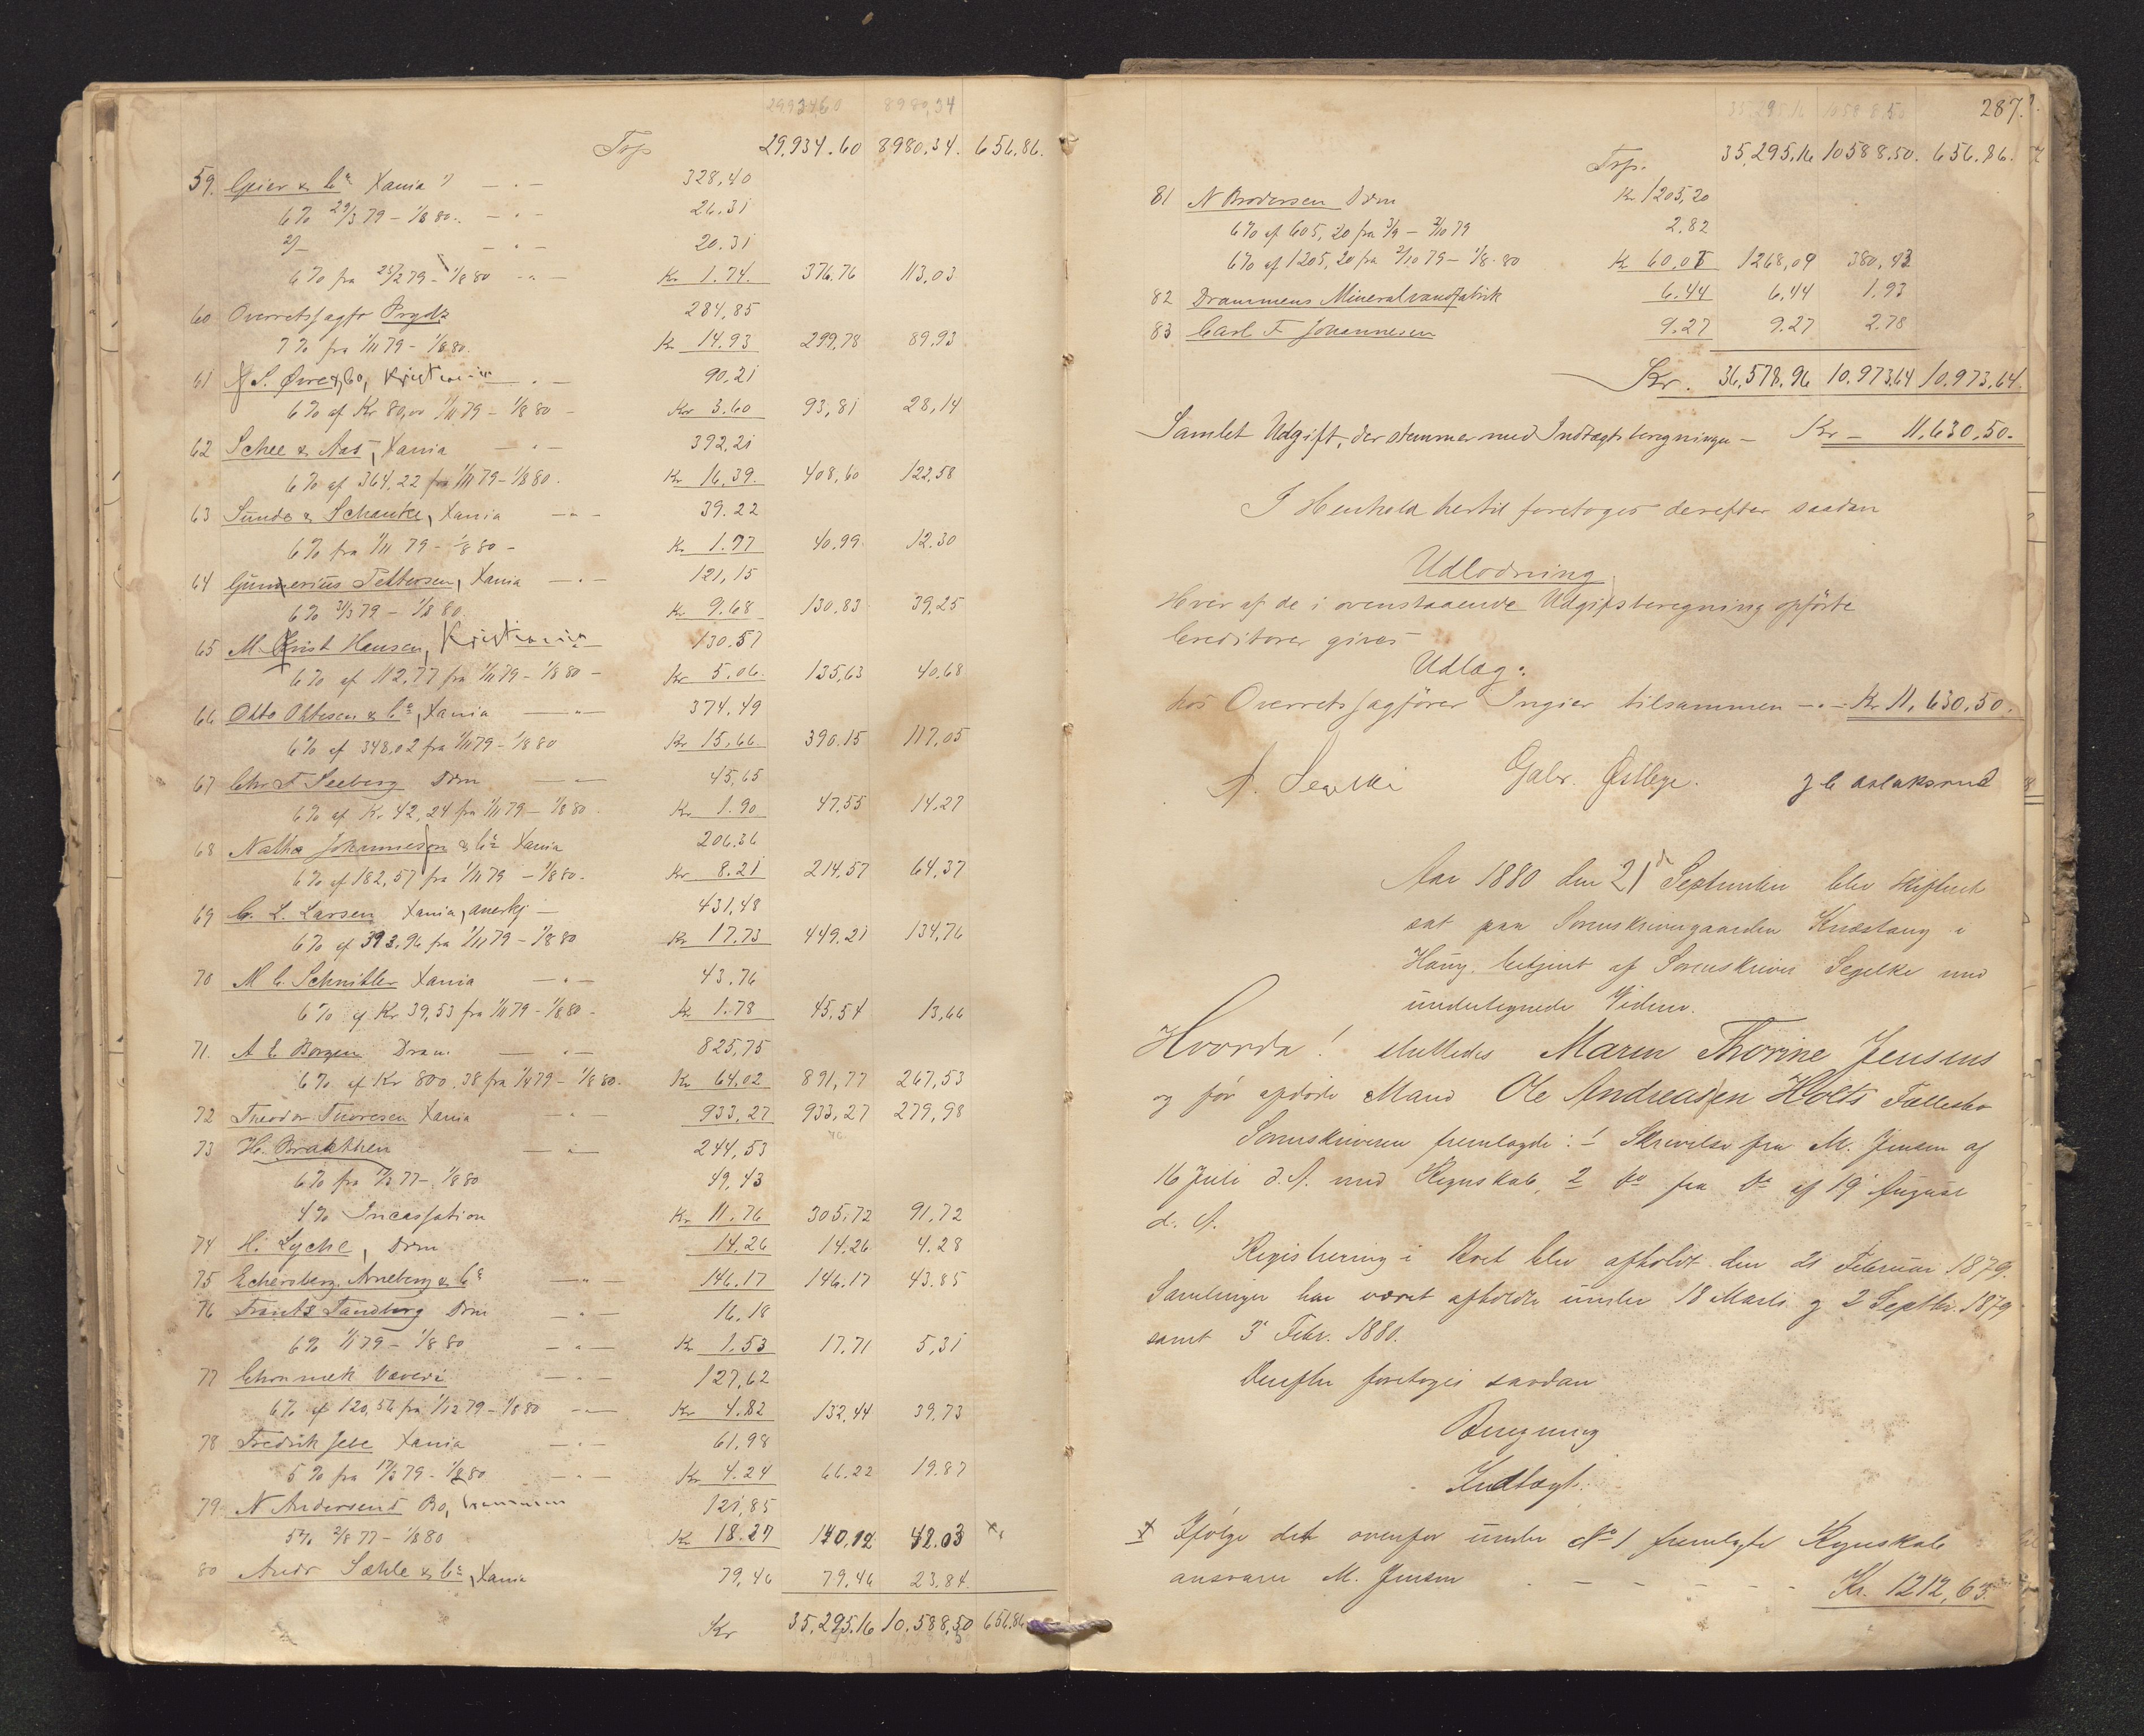 29,934.60 8980,34
Trsp 29,934.60 8980.34. 656.86.
59. Geier & Co Xania " — " — 328,40
6% 29/3 79 – 1/8 80. — " — 26.31
2/— — " — 20.31
6% fra 25/2 79 – 1/8 80 — " — Kr 1.74. 376.76 113,03
60 Overretssagfr Prydz 284,85
7% fra 1/11 79 – 1/8 80. Kr 14.93 299,78 89,93
61 S. Øvre & Co, Kristiania — " — 90,21
6% af Kr 80,00 1/11 79 – 1/8 80 – Kr 3.60 93,81 28,14
62 Schee & Aas, Xania — " — 392,21
6% af 364,22 fra 1/11 79 – 1/8 80. Kr 16,39. 408,60 122,58
63 Sunde & Schanke, Xania — " — 39.22
6% fra 1/11 79 – 1/8 80 – Kr 1.77 40,99. 12.30
64 Gunnerius Pettersen, Xania — " — 121,15
6% 31/3 79 – 1/8 80. Kr 9.68 130,83 39,25
65 M. Krist Hansen, Kristiania — 130.57
6% af 112,77 fra 1/11 79 – 1/8 80 – Kr 5.06. 135,63 40,68
66 Otto Ottesen & Co, Xania — " — 374,49
6% af 348,02 fra 1/11 79 – 1/8 80 Kr 15,66 390.15 117,05
67 Chr. F Seeberg Drm — " — 45,65
6% af Kr 42,24 fra 1/11 79 – 1/8 80. Kr 1.90 47,55 14,27
68 Natha Johannesen & Co Xania 206,36
6% af 182,57 fra 1/11 79 – 1/8 80. Kr 8.21 214,57 64,37
69 C. L. Larsen Xania, anerkj — 431,48
6% af 393,96 fra 1/11 79 – 1/8 80 Kr 17.73 449,21 134,76
70 M C. Schnitler Xania — " — 43.76
6% af Kr 39,53 fra 1/11 79 – 1/8 80 – Kr 1.78 45,54 13,66
71. A E Borgen Dram. — " — 825,75
6% af Kr 800.38 fra 1/4 79 – 1/8 80. Kr 64,02 891,77 267,53
72 Theodor Thoresen Xania — " — 933,27 933,27 279,98
73 H. Brakthen — " — 244,53
6% fra 1/3 77 – 1/8 80 49,43
4% Incassation Kr 11.76 305,72 91,72
74 H. Lyche, Drm 14,26 14,26 4.28
75 Eckersberg, Arneberg & Co — " — 146.17 146,17 43.85
76 Frants Tandberg Drm — " — 16,18
6% 1/1 79 – 1/8 80 — " — Kr 1.53 17.71 5,31
77 Chra mek Væveri — " — 127,62
6% af 120,56 fra 1/12 79 – 1/8 80 — " — Kr 4.82 132,44 39,73
78 Fredrik Jebe Xania — " — 61,98
5% fra 17/3 79 – 1/8 80 — " — Kr 4.24 66.22 19.87
79 N Andersens Bo, Drammen 121,85
5% 2/8 77 – 1/8 80 Kr 18.27 140,12 42.03
80 Andr Sæhle & Co, Xania 79,46 79,46 23,84.
Kr 35,295.16 10,588,50 656,86
35,295,16 10588.50 287.
Trsp. 35,295.16 10588.50. 656.86.
81 N Brodersen Drm Kr 1205,20
6% af 605,20 fra 3/9 – 2/10 79 2.82
6% af 1205,20 fra 2/10 79 – 1/8.80 Kr 60.07 1268,09 380,43
82 Drammens Mineralvandfabrik 6.44 6,44 1.93
83 Carl F Johannesen 9.27 9.27 2.78
Kr. 36,578.96 10.973,64 10,973,64.
Samlet Udgift, der stemmer med Indtægtsberegningen – Kr – 11,630,50.
I Henhold hertil foretoges derefter saadan
Udlodning
Hver af de i ovenstaaende Udgiftsberegning opførte
Creditorer gives
Udlæg:
hos Overretssagfører Ingier tilsammen — " — Kr 11,630,50.
A. Segelke Gabr. Østbye. J C Aslaksrud
Aar 1880 den 21de September blev Skifteret
sat paa Sorenskrivergaarden Knæstang i
Haug, betjent af Sorenskriver Segelke med
undertegnede Vidner.
Hvorda! sluttedes Maren Thorine Jensens
og før afdøde Mand Ole Andreassen Holts Fællesbo
Sorenskriveren fremlagde: 1 Skrivelse fra M. Jensen af
16 Juli d. A. med Regnskab, 2 Do fra Do af 19 August
d. A.
Registrering i Boet blev afholdt den 21 Februar 1879.
Samlinger har været afholdte under 18 Marts og 2 Septbr. 1879
samt 3 Febr. 1880.
Derefter foretoges saadan
Beregning
Indtægt.
1 Ifølge det ovenfor under No 1 fremlagte Regnskab
ansvarer M. Jensen . – – – – – – Kr. 1212,63.